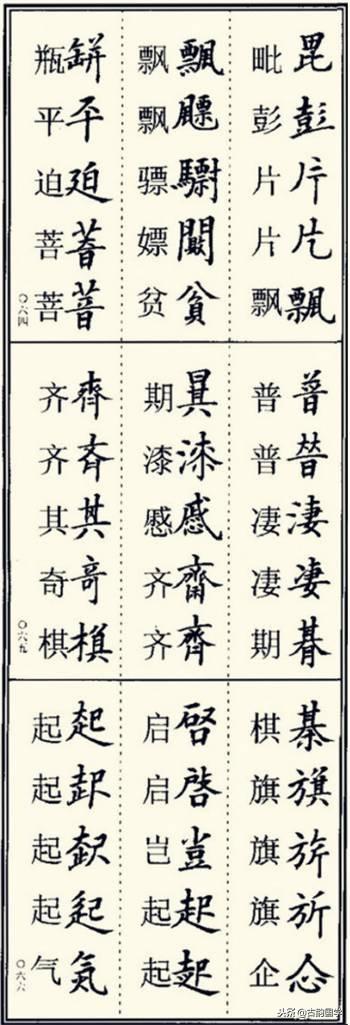 毘彭片飄
毗彭片片飘
飄貧
飘飘骠嫖贫
缾平廹
瓶平迫菩菩
〇六四
普淒凄朞
普普凄凄期
漆慼齊
期漆慼齐齐
齊其竒
齐齐其奇棋
〇六五
棊旗
棋旗旗旗企
啓豈起起
启启岂起起
起起氣
起起起起气
〇六六
头条@古韵国学